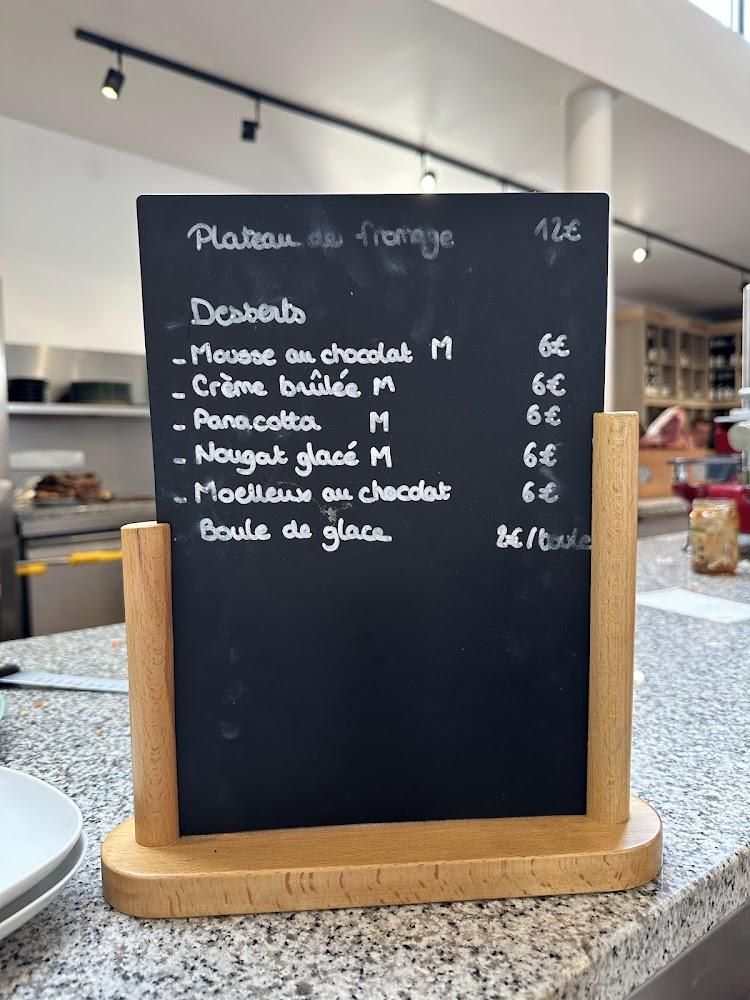 Plateau de fromage 12€
Desserts
- Mousse au chocolat M 6€
- Crème brûlée M 6€
- Panacotta M 6€
- Nougat glacé M 6€
- Moelleux au chocolat 6€
Boule de glace 2€/boule